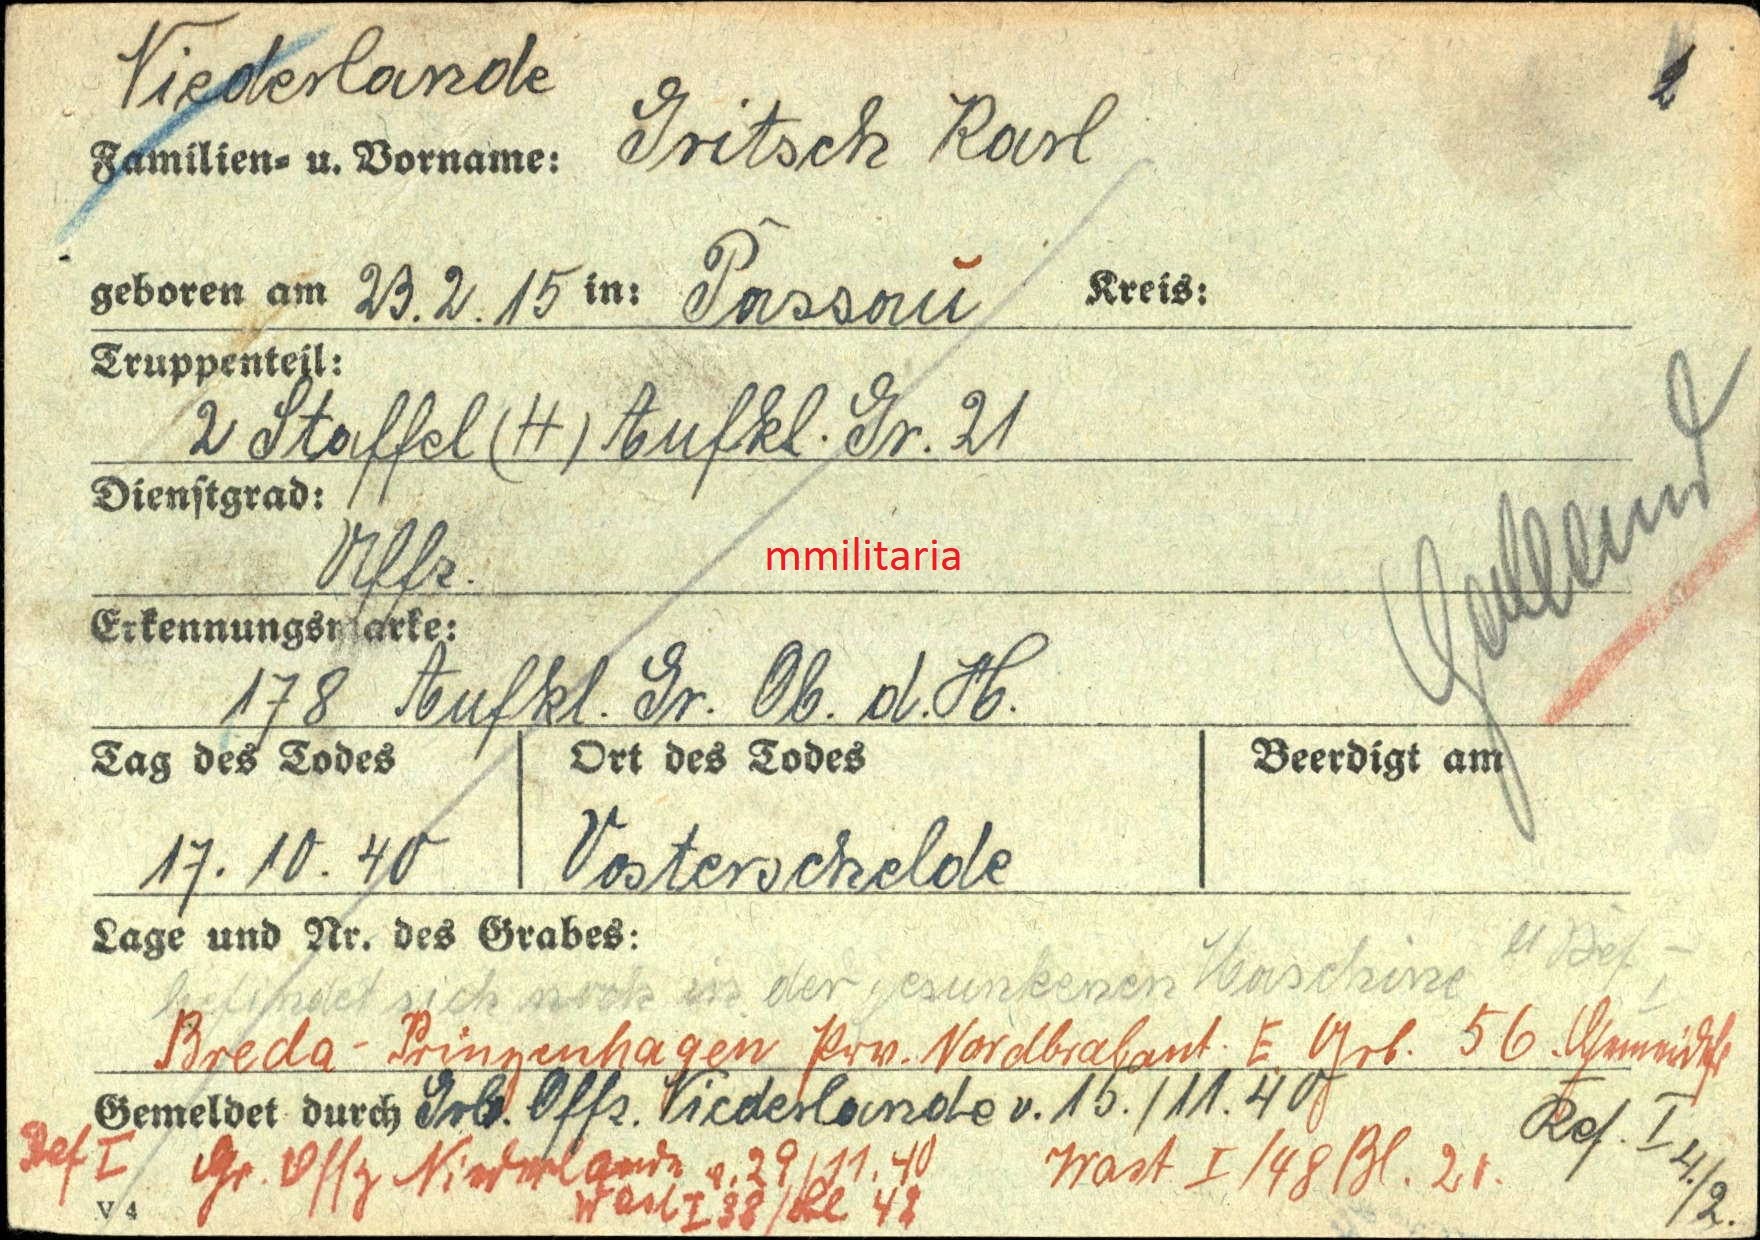 Niederlande
2
Familien- u. Vorname: Gritsch Karl
geboren am 23.2.15 in: Passau Kreis:
Truppenteil:
2 Staffel (H) Aufkl. Gr. 21
Dienstgrad:
Uffz.
mmilitaria
Erkennungsmarke:
178 Aufkl. Gr. Ob. d. H.
Tag des Todes Ort des Todes Beerdigt am
17. 10. 40 Vosterschelde
Lage und Nr. des Grabes:
befindet sich noch in der gesunkenen Maschine
Breda - Prinzenhagen Prv. Nordbrabant. E Grb. 56.
Gemeldet durch Grb. Offz. Niederlande v. 15./11.40 Ref. I
Ref I Gr. Offz Niederlande v. 29/11.40 Wast I/48 Bl. 21. 4/2.
Wast I 38/Bl 48
V 4